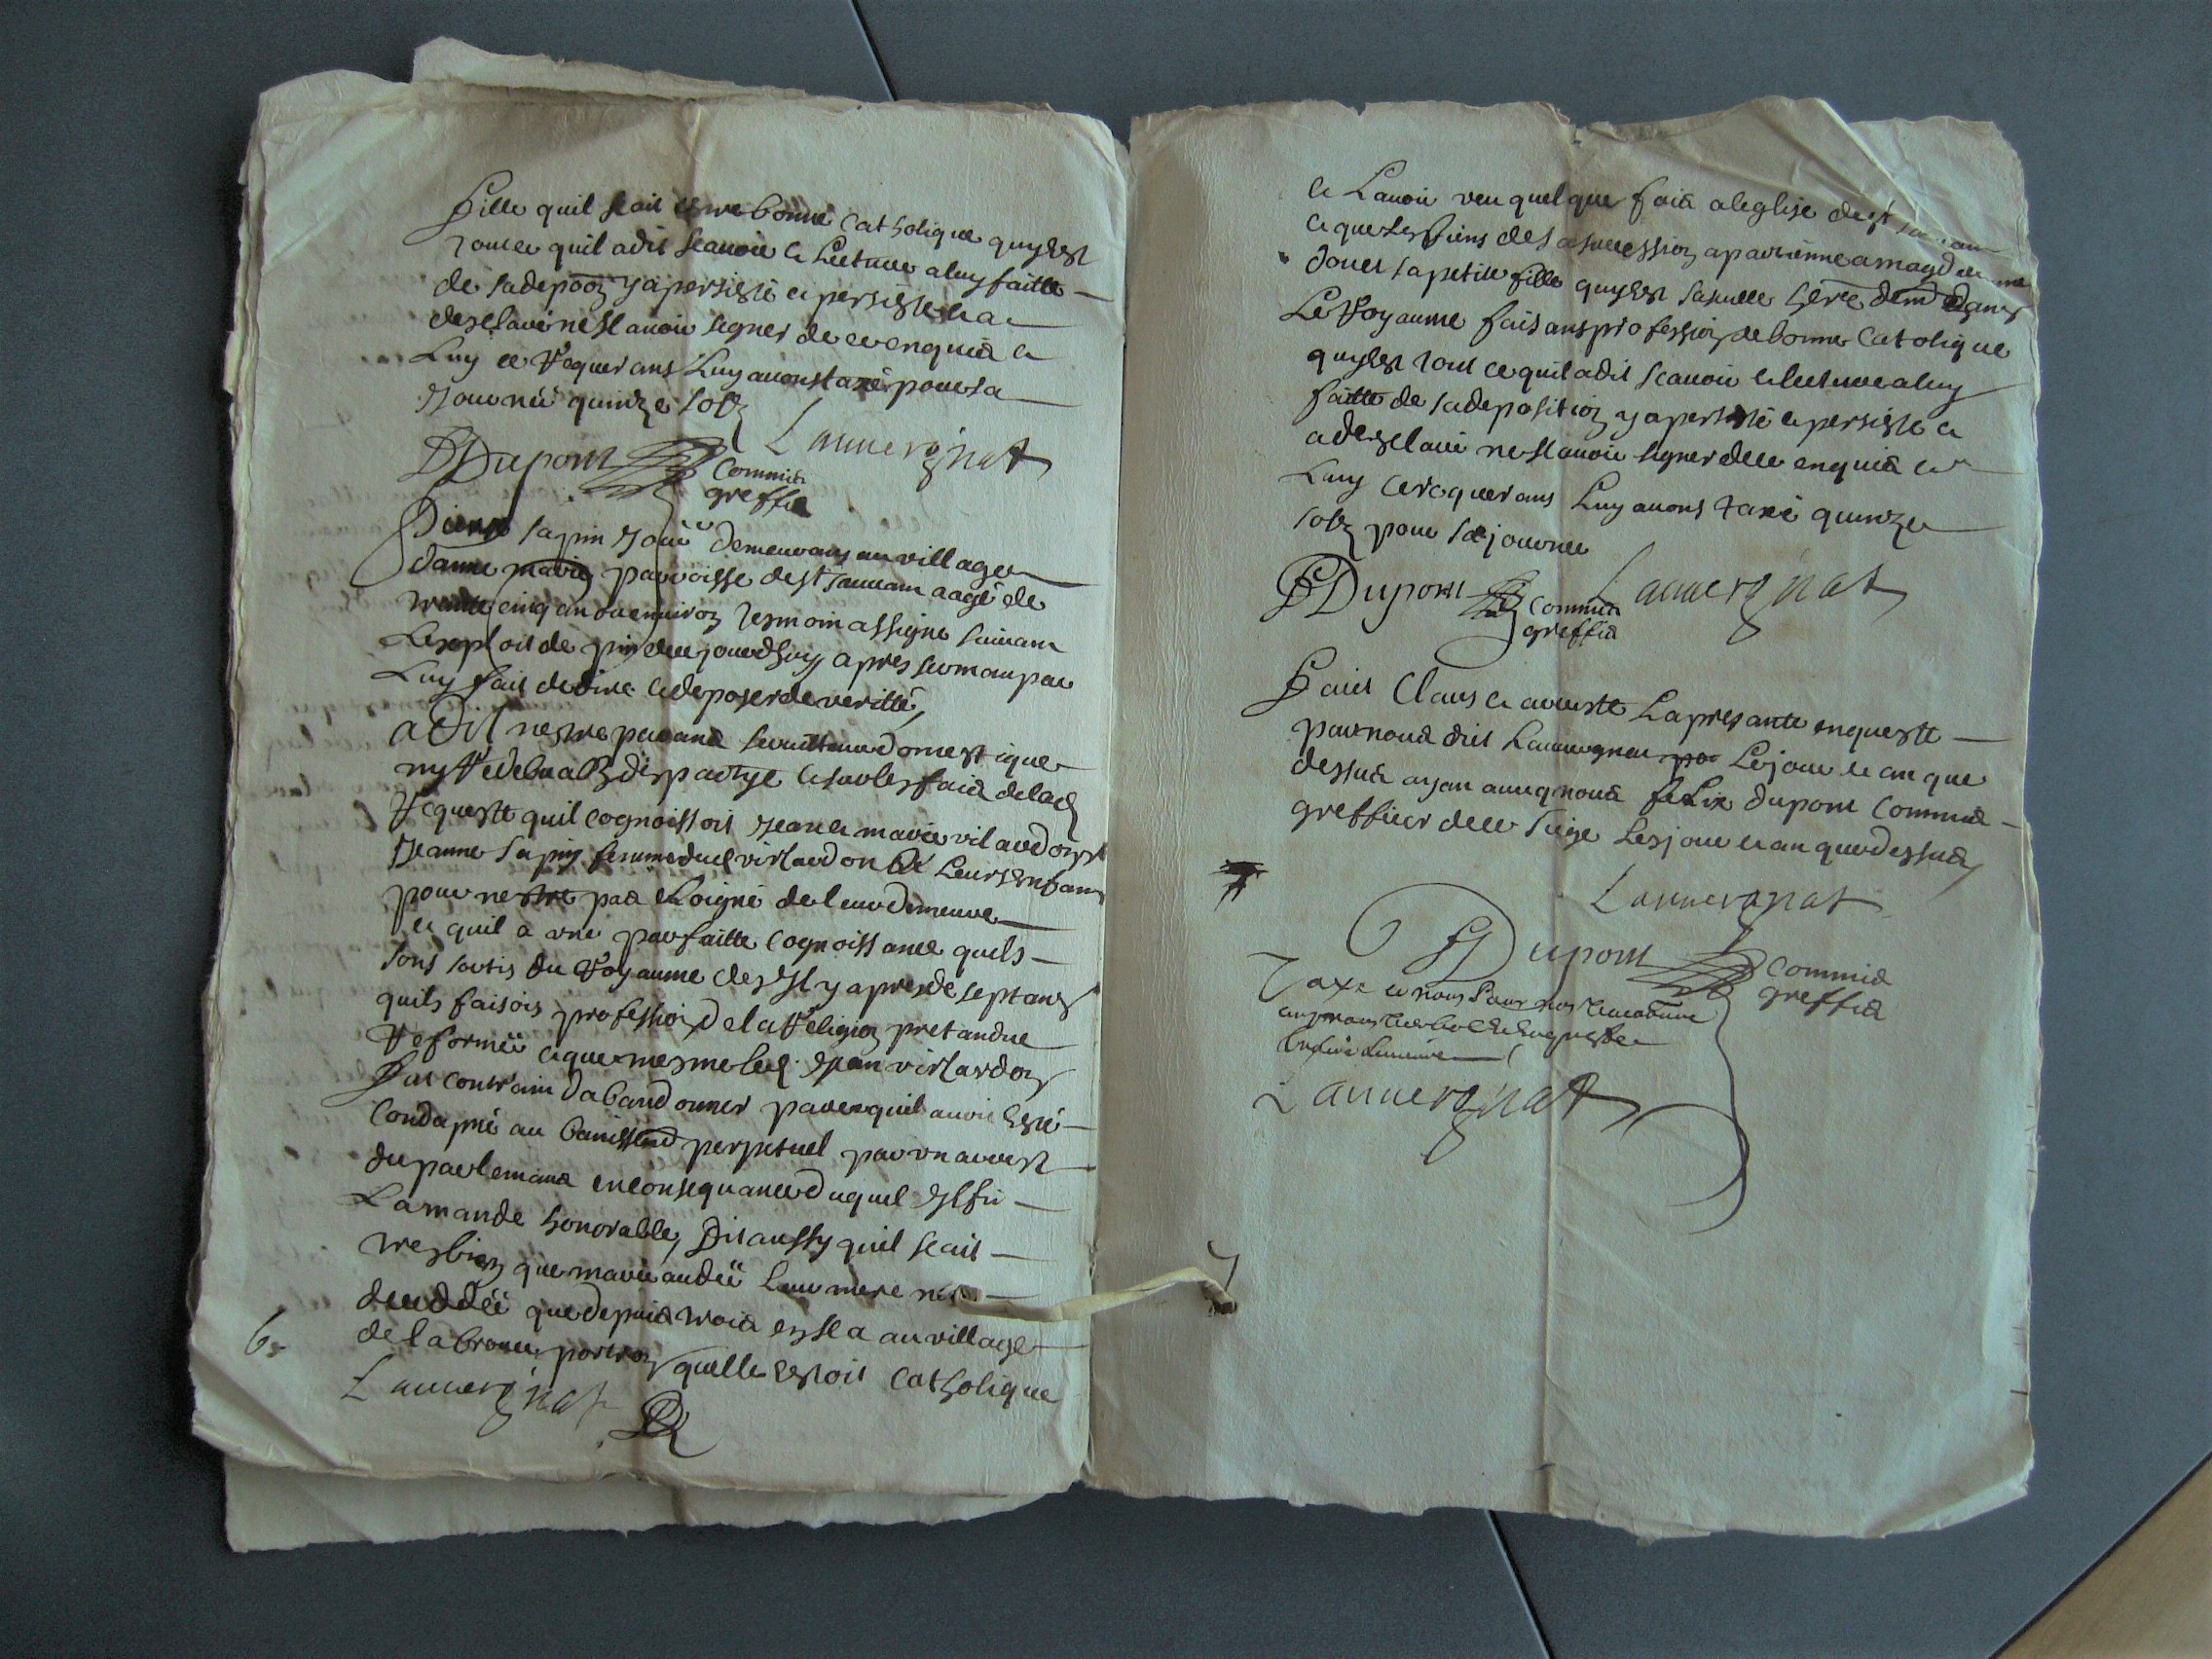 fille quil scait estre bonne catholique quy est
tout ce quil a dit scavoir et lecture a luy faitte
de sa depoon y a persisté et persiste et a
desclaré ne scavoir signer de ce enquis et
luy ce requerans luy avons taxé pour sa
journée quinze solz
Lauvergnat
FDupont Commis
greffier
Pierre Sapin demeurans au village
parroisse de st sauvam aagé de
trante cinq an ou environ tesmoin assigne suivam
lexploit de ce jourdhuy apres sermam par
luy fait de dire et deposer de veritté
a dit nestre parans servitteur domestique
ny redebvable dis partye et sur les faicts de lad
requeste quil cognoissoit Jean et marie vilardon
Jeanne Sapin femme dud virlardon et leurs enfans
pour nestre pas esloigné de leur demeure
et quil a une parfaitte cognoissance quels
sont sortis du royaume des Il y a pres de sept ans
quils faisois profession de la religion pretandue
reformée et que mesme led Jean virlardon
fut contraint dabandonner parce quil avoit esté
condapné au banissemt perpetuel par un arrest
du parlemans en consequance duquel Il fit
lamande honorable, Dit aussy quil scait
tres bien que marie audée leur mere
deceddée que depuis trois en sca au village
de la quelle estoit catholique
6.
Lauvergnat
et lavoir veu quel que fois a leglise de st
et que les biens de sa sucession apartienne a magdelenne
sa petite fille quy est sa seulle
le royaume faisans profession de bonne catolique
quy est tout ce quil a dit scavoir et lecture a luy
faitte de sa deposition y a persisté et persiste et
a desclaré ne scavoir signer de ce enquis et
luy ce requerans luy avons taxé quinze
solz pour sa journee
FDupont Commis
greffier
Lauvergnat
Faict claus et arresté la presante enqueste
par nous dit Lauvergnat le jour et an que
dessus ayan avecq nous felix dupont commis
greffier de ce siege les jour et an que dessus
Lauvergnat
FDupont Commis
greffier
Taxe et nous pour nos
Lauvergnat